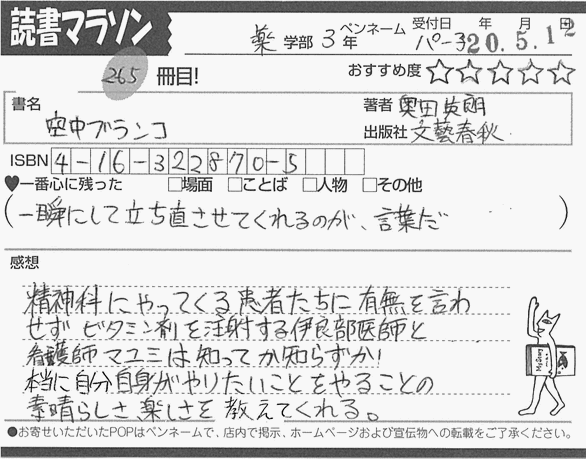 読書マラソン
薬 学部 3 年 ペンネーム パーネ
受付日 年 月 日
20.5.12
265 冊目!
おすすめ度 ☆☆☆☆☆
書名 空中ブランコ
著者 奥田英朗
出版社 文藝春秋
ISBN 4-16-322870-5
♥一番心に残った □場面 □ことば □人物 □その他
(一瞬にして立ち直させてくれるのが、言葉だ )
感想
精神科にやってくる患者たちに有無を言わ
せずビタミン剤を注射する伊良部医師と
看護師マユミは知ってか知らずか!
本当に自分自身がやりたいことをやることの
素晴らしさ楽しさを教えてくれる。
●お寄せいただいたPOPはペンネームで、店内で掲示、ホームページおよび宣伝物への転載をご了承ください。